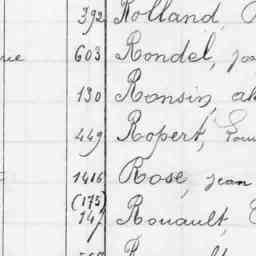 392 Rolland,
603 Rondel,
130 Ronsin,
449 Ropert,
1416 Rose, jean
(175)
147 Rouault,